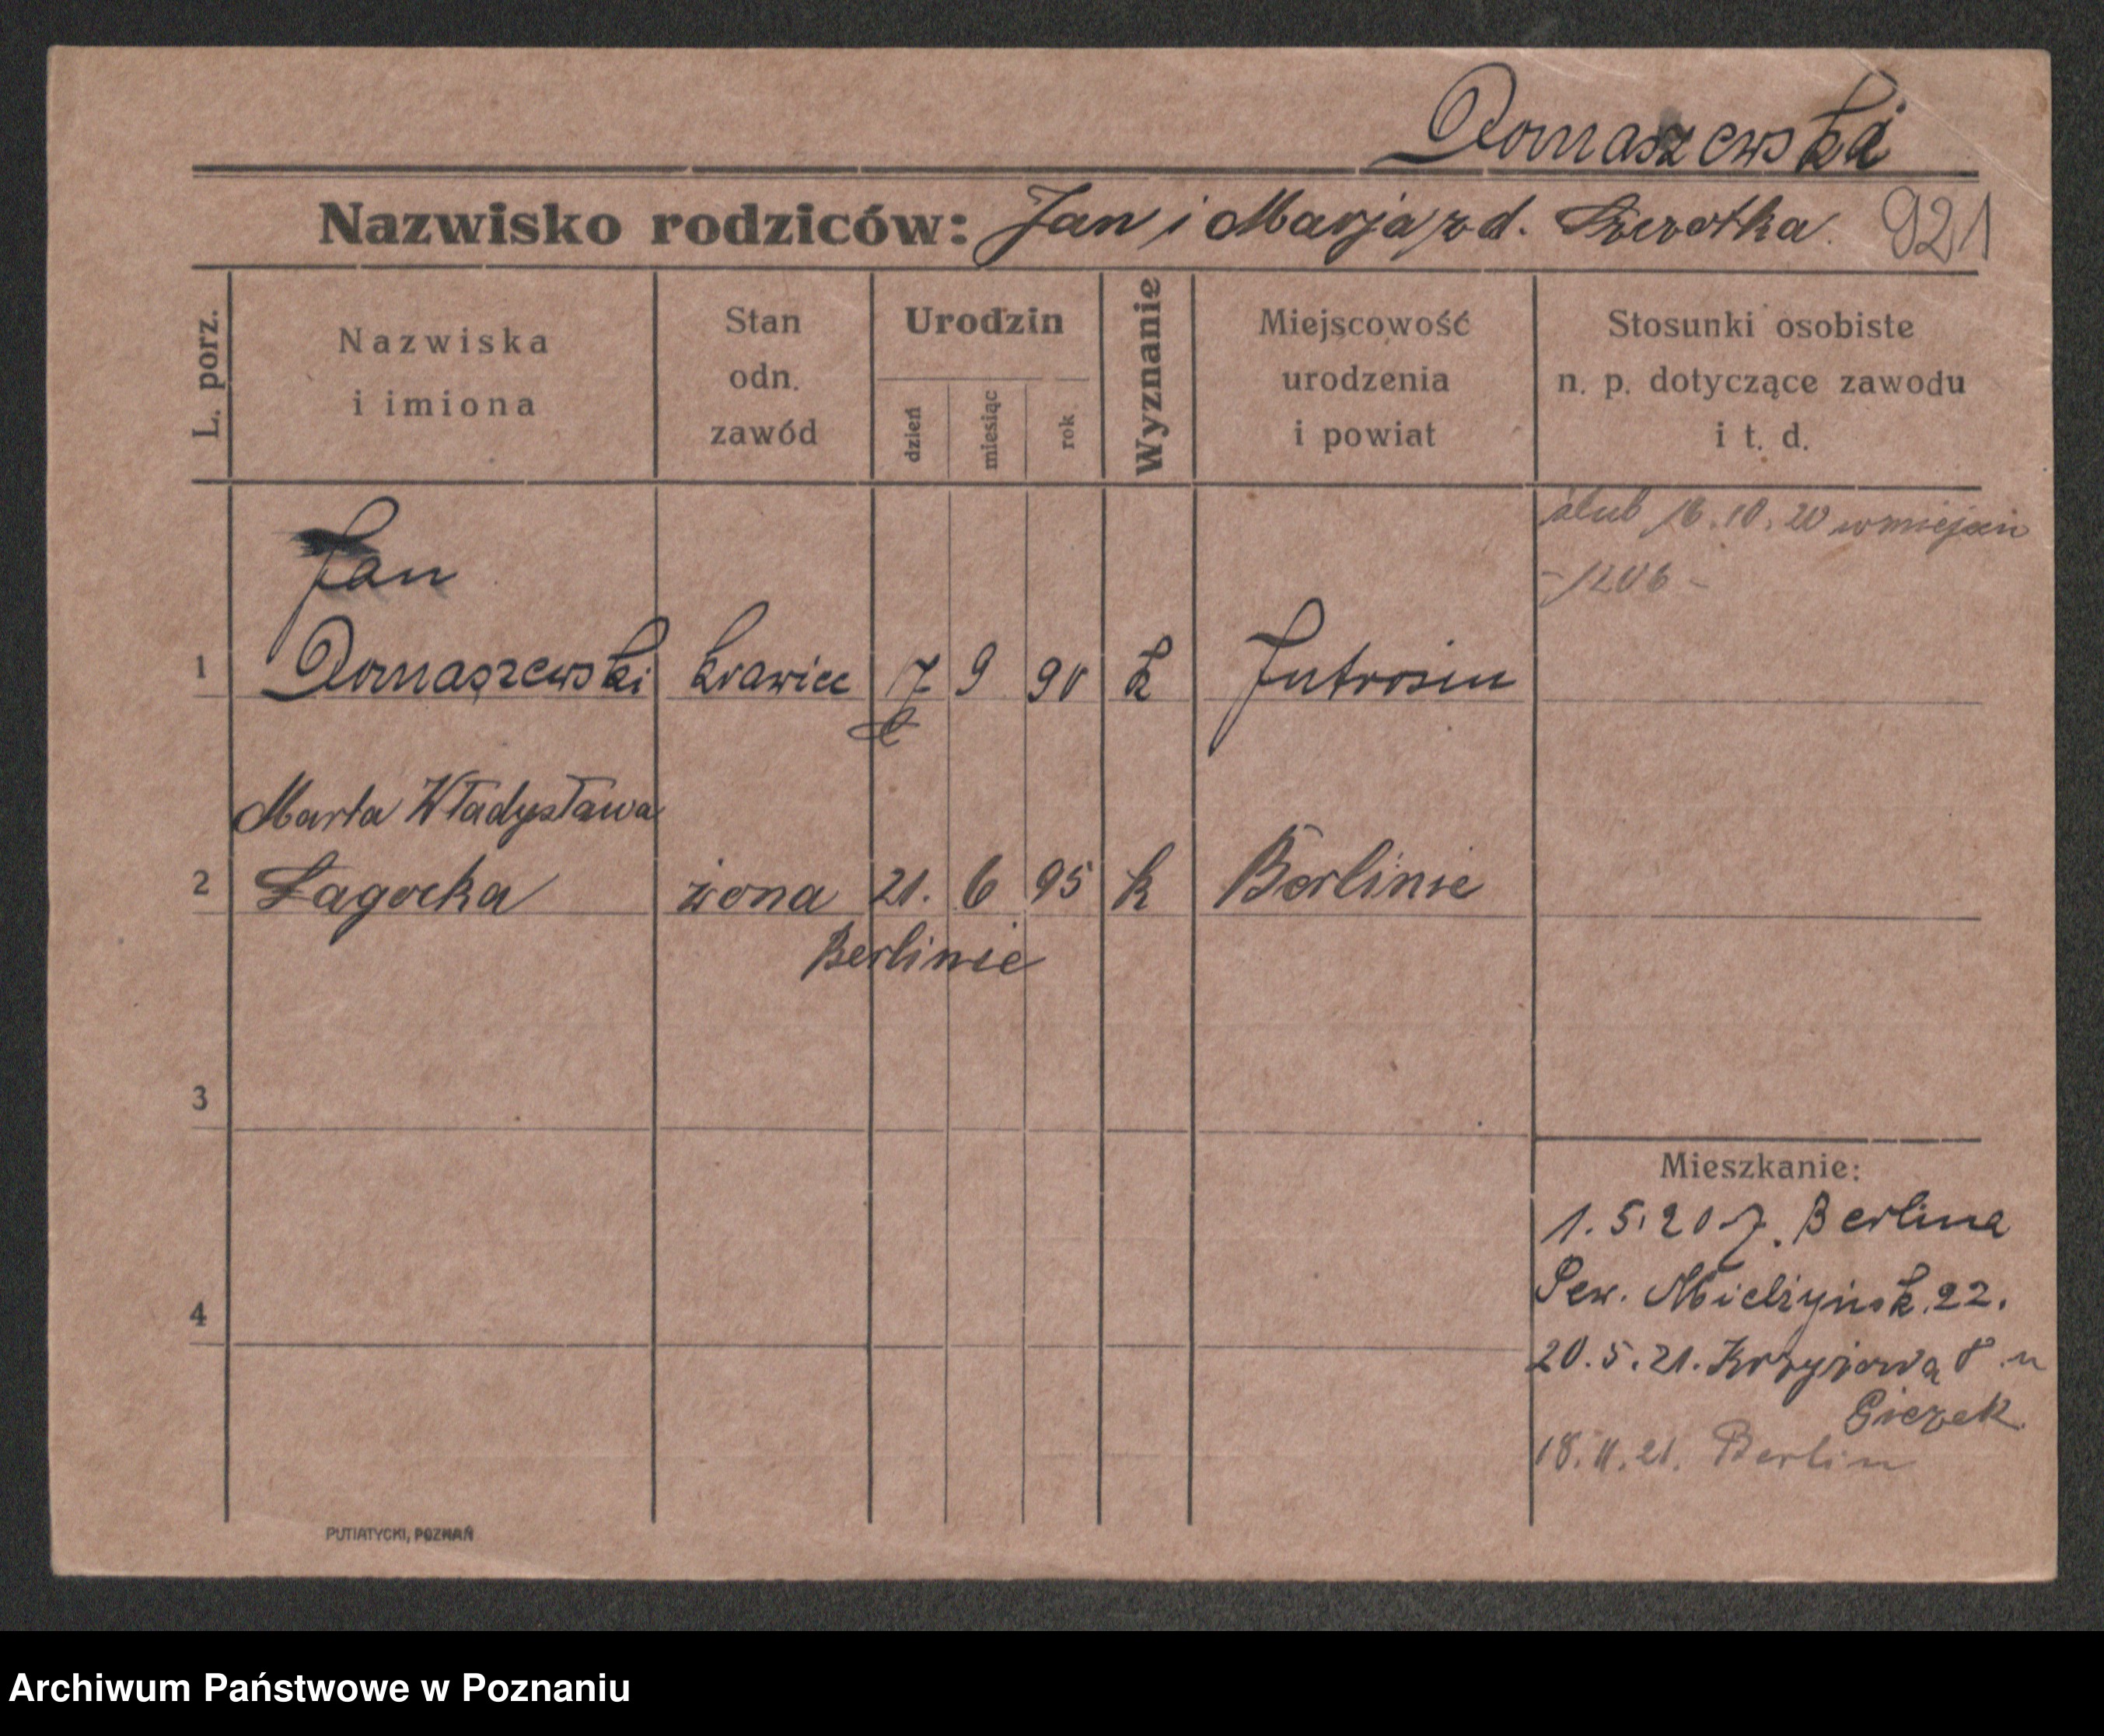 Domaszewski
Nazwisko rodziców: Jan i Marja zd. 921
L. porz.
Nazwiska
i imiona
Stan
odn.
zawód
Urodzin
dzień
miesiąc
rok
Wyznanie
Miejscowość
urodzenia
i powiat
Stosunki osobiste
n. p. dotyczące zawodu
i t. d.
ślub 16.10.20 w miejscu
- 1206 -
Jan
1 Domaszewski krawiec 7 9 90 k Jutrosin
Marta Władysława
2 Łagocka żona 21. 6 95 k Berlinie
Berlinie
3
Mieszkanie:
1.5.20 z Berlina
Sew. Mielżyńsk. 22.
4
20.5.21. Krzyżowa 8 u
Giezek
18.11.21. Berlin
PUTIATYCKI, POZNAŃ
Archiwum Państwowe w Poznaniu